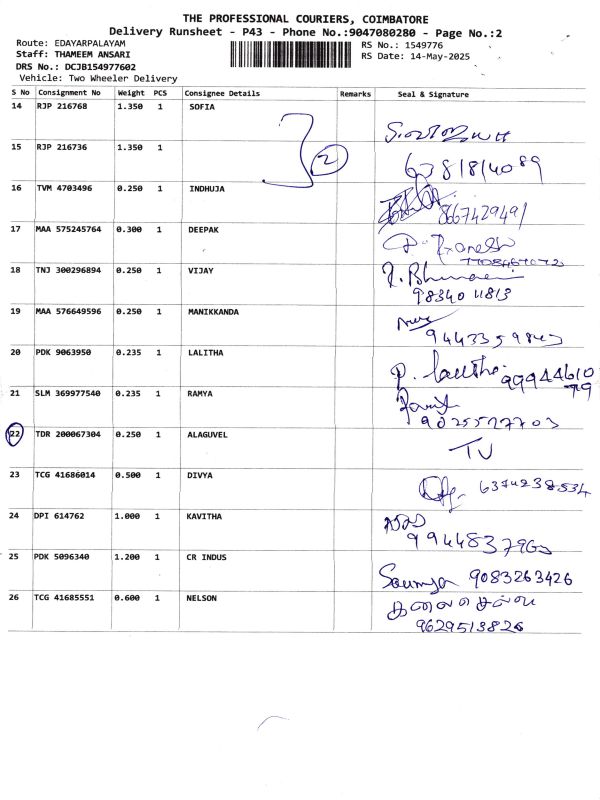 THE PROFESSIONAL COURIERS, COIMBATORE
Delivery Runsheet - P43 - Phone No.:9047080280 - Page No.:2
Route: EDAYARPALAYAM
Staff: THAMEEM ANSARI
DRS No.: DCJB154977602
Vehicle: Two Wheeler Delivery
RS No.: 1549776
RS Date: 14-May-2025
S No Consignment No Weight PCS Consignee Details Remarks Seal & Signature
14 RJP 216768 1.350 1 SOFIA
15 RJP 216736 1.350 1
2
6381814089
16 TVM 4703496 0.250 1 INDHUJA
8667429491
17 MAA 575245764 0.300 1 DEEPAK
18 TNJ 300296894 0.250 1 VIJAY
9834011813
19 MAA 576649596 0.250 1 MANIKKANDA
20 PDK 9063950 0.235 1 LALITHA
9994461079
21 SLM 369977540 0.235 1 RAMYA
9025577703
22 TDR 200067304 0.250 1 ALAGUVEL
TV
23 TCG 41686014 0.500 1 DIVYA
6374238534
24 DPI 614762 1.000 1 KAVITHA
25 PDK 5096340 1.200 1 CR INDUS
Soumya 9083263426
26 TCG 41685551 0.600 1 NELSON
9629513826